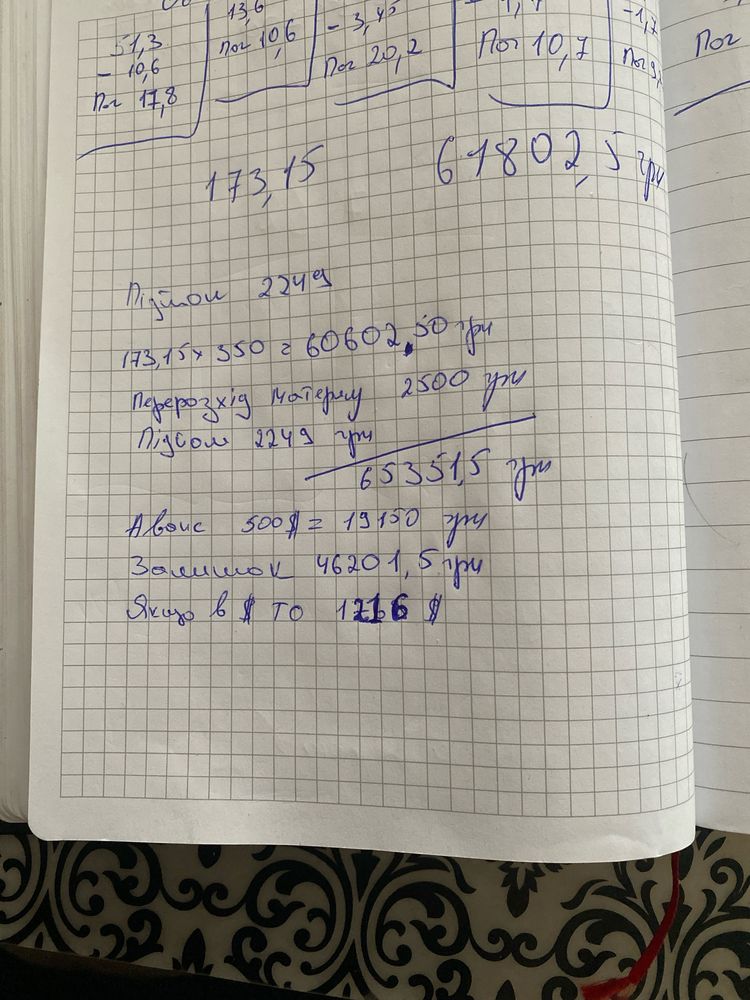 51,3
- 10,6
Пог 17,8
13,6
Пог 10,6
- 3,45
Пог 20,2
Пог 10,7
-1,7
Пог
173,15
61802,5 грн
2249
173,15 x 350 = 60602,50 грн
Перерозхід матерялу 2500 грн
2249 грн
65351,5 грн
Аванс 500$ = 19150 грн
Залишок 46201,5 грн
Якщо в $ то 1216 $